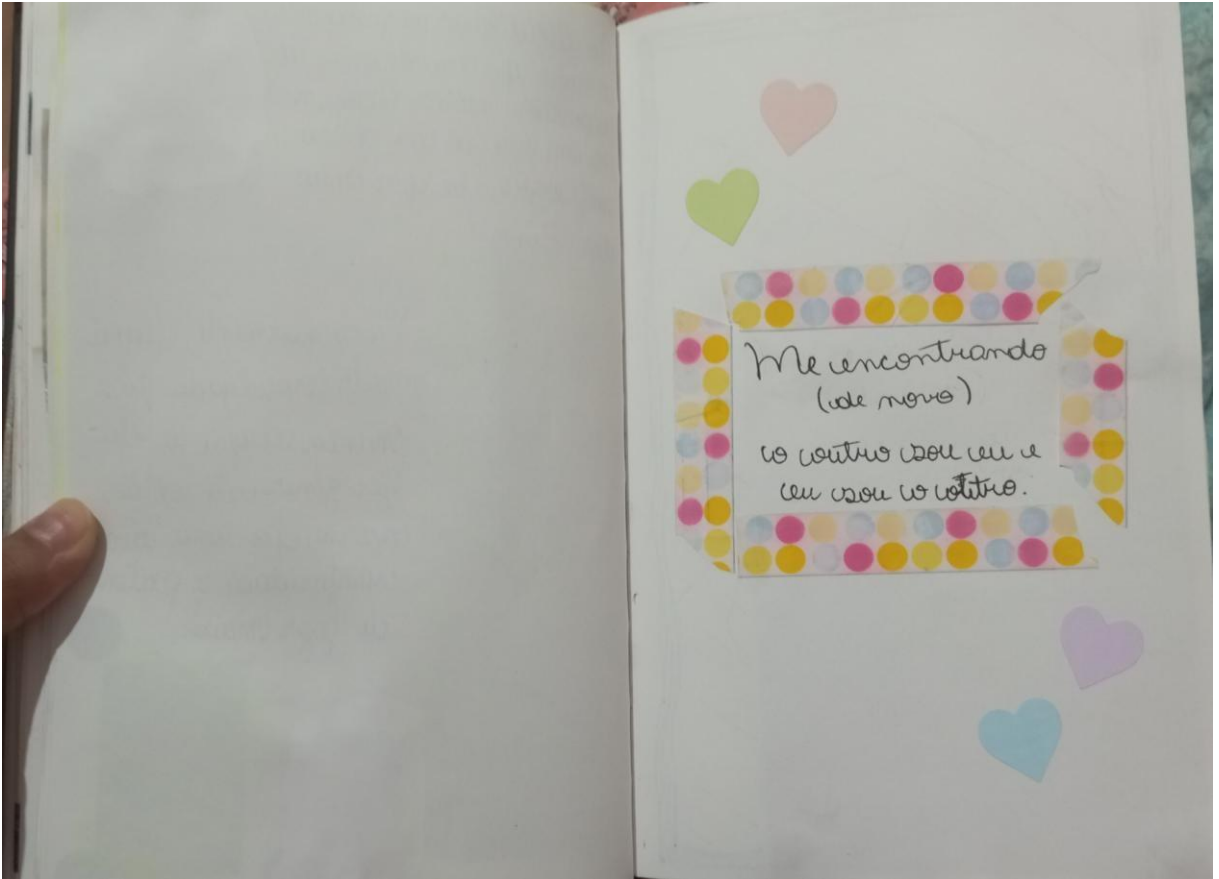 Me encontrando
(de novo)
o outro sou eu e
eu sou o outro.